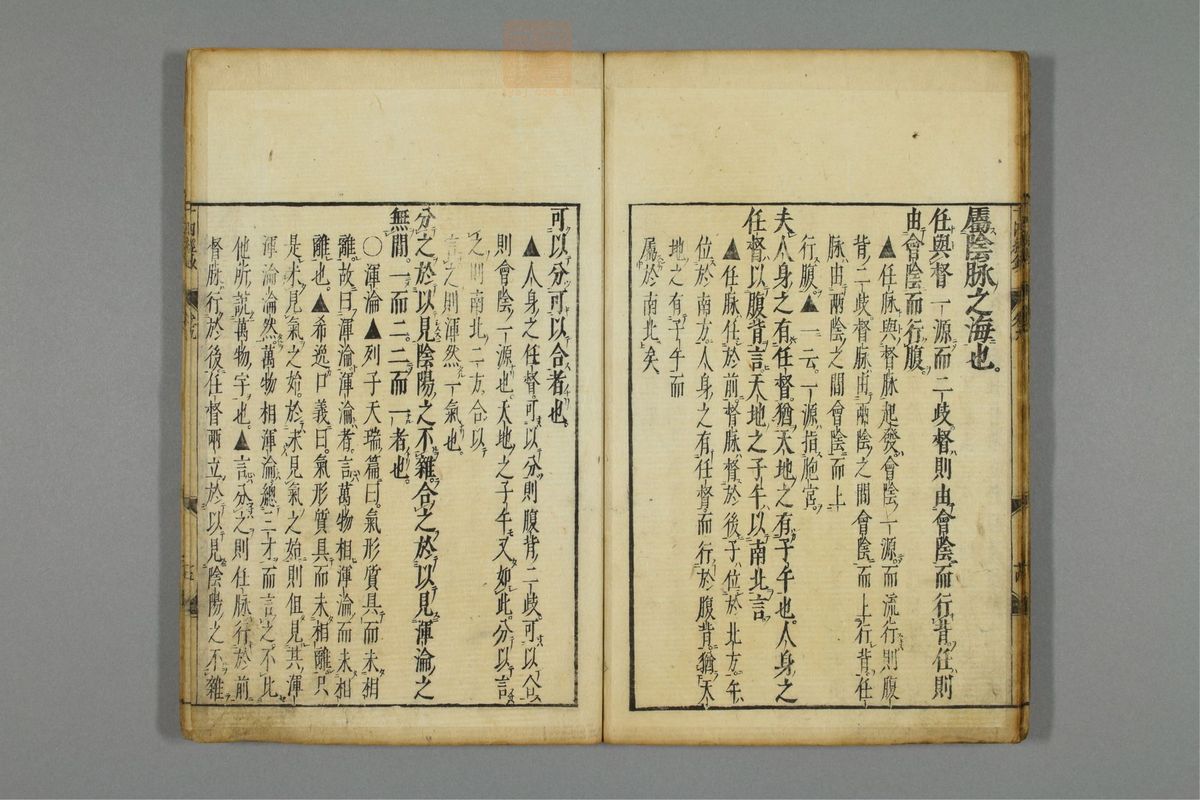 屬陰脉之海也
任與督一源而二歧督則由會陰而行背任則
由會陰而行腹
▲任脉與督脉起發會陰一源而流行則腹
背二歧督脉由兩陰之間會陰而上行背任
脉由兩陰之間會陰而上
行腹▲一云一源指胞宮
夫人身之有任督猶天地之有子午也人身之
任督以腹背言天地之子午以南北言
▲任脉任於前督脉督於後子位於北方午
位於南方人身之有任督而行於腹背猶天
地之有子午而
屬於南北矣
可以分可以合者也
▲人身之任督可以分則腹背二歧可以合
則會陰一源也天地之子午又如此分以言
之則南北二方合以
言之則渾然一氣也
分之於以見陰陽之不雜合之於以見渾淪之
無間一而二二而一者也
○渾淪▲列子天瑞篇曰氣形質具而未相
離故曰渾淪渾淪者言萬物相渾淪而未相
離也▲希逸口義曰氣形質具而未相離只
是未見氣之始於未見氣之始則但見其渾
渾淪淪然萬物相渾淪總三才而言之不比
他所說萬物字也▲言分之則任脉行於前
督脉行於後任督兩立於以見陰陽之不雜